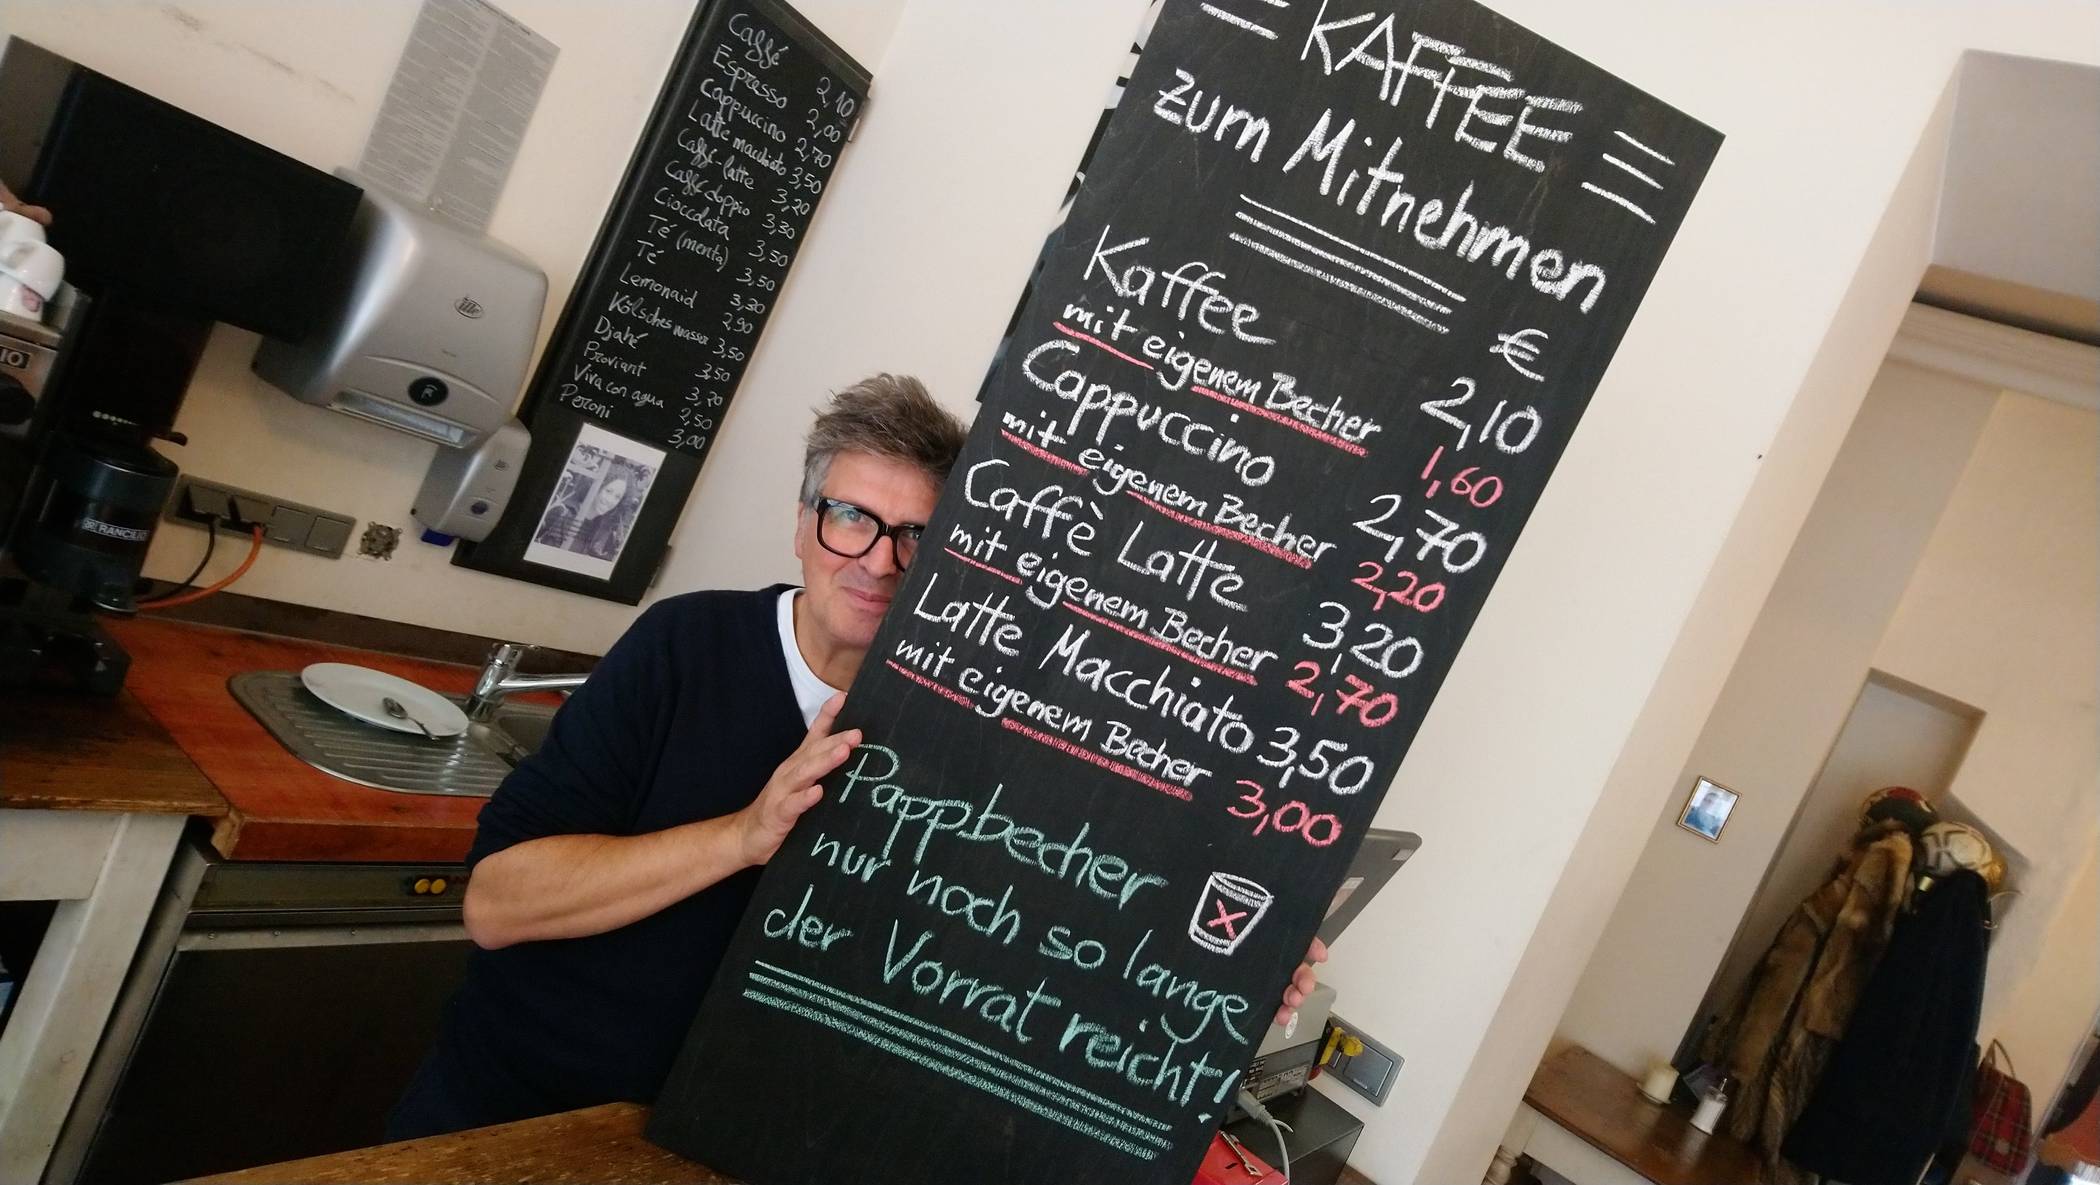 Caffé 2,10
Espresso 2,00
Cappuccino 2,70
Latte macchiato 3,50
Caffé-latte 3,20
Caffé doppio 3,30
Cioccolata 3,50
Té (menta) 3,50
Té 3,30
Lemonaid 2,90
Kölsches wasser 3,50
Djahé 3,50
Proviant 3,20
Viva con agua 2,50
Peroni 3,00
KAFFEE
zum Mitnehmen
€
Kaffee 2,10
mit eigenem Becher 1,60
Cappuccino 2,70
mit eigenem Becher 2,20
Caffè Latte 3,20
mit eigenem Becher 2,70
Latte Macchiato 3,50
mit eigenem Becher 3,00
Pappbecher
nur noch so lange
der Vorrat reicht!
RANCILIO
IO
ille
ille